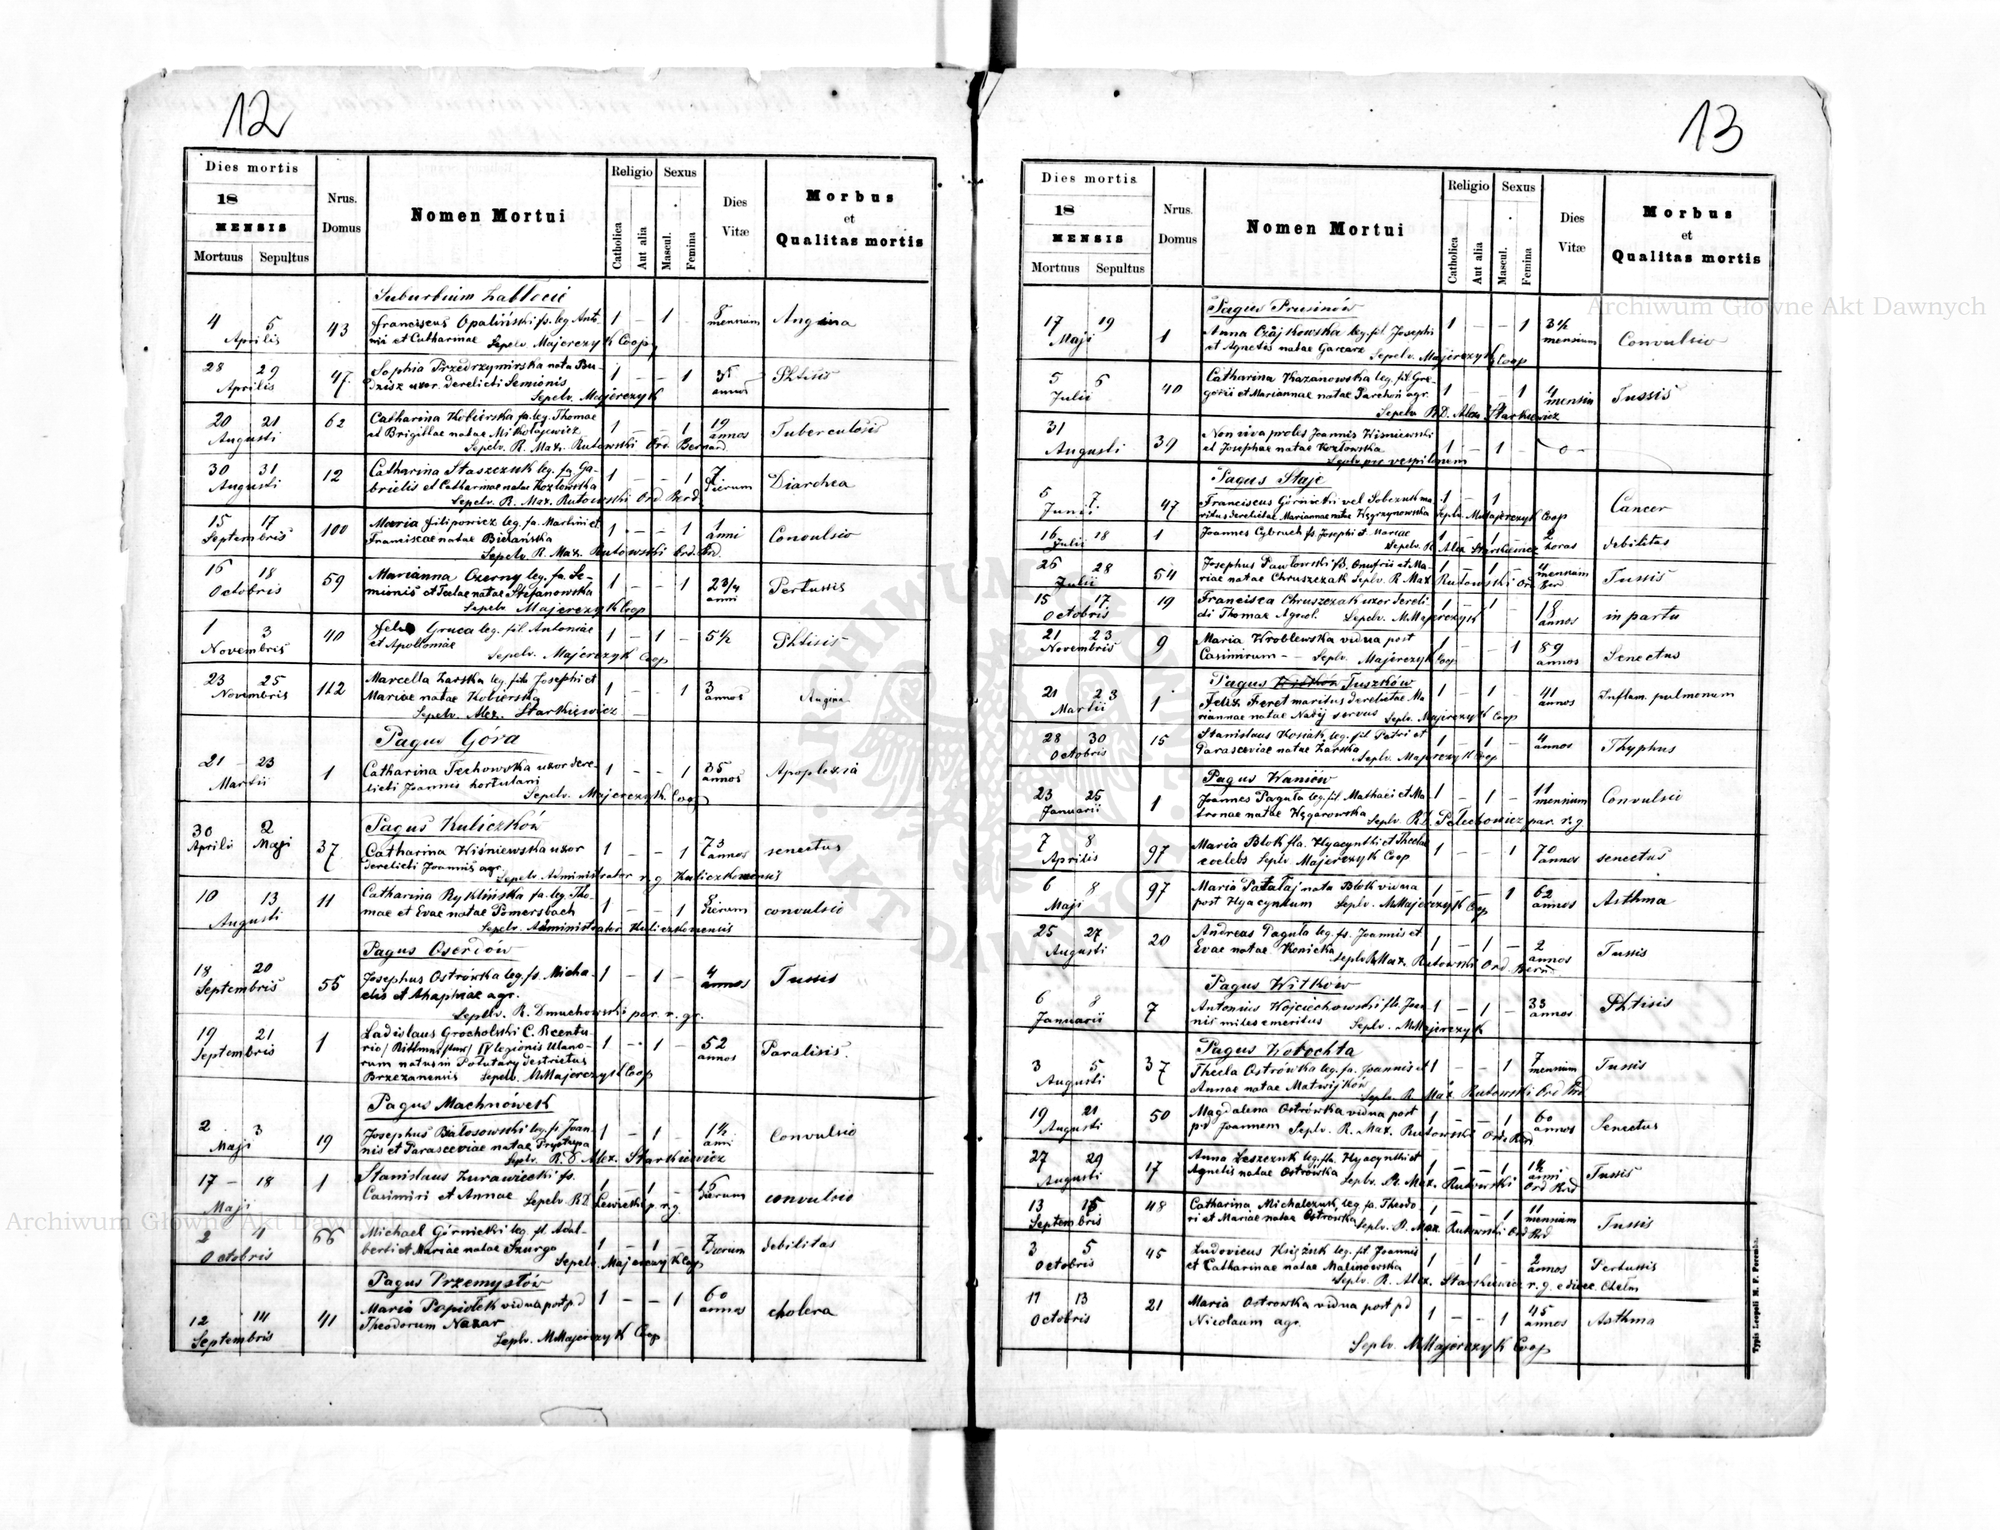 12
Dies mortis
18
MENSIS
Mortuus Sepultus
Nrus. Domus
Nomen Mortui
Religio
Catholica
Aut alia
Sexus
Mascul.
Femina
Dies Vitæ
Morbus et Qualitas mortis
Suburbium Zabłocie
4 5 43 Franciscus Opaliński fs. leg. Anto- 1 – 1 – 8 mensium Angina
Aprilis nii et Catharinae Sepelv. Majerczyk Coop
28 29 47 Sophia Przedrzymirska nata Bu- 1 – – 1 annos Phtisis
Aprilis dzisz uxor derelicti Semionis
Sepelv. Majerczyk
20 21 62 Catharina Kobierska fa. leg. Thomae 1 – – 1 19 annos Tuberculosis
Augusti et Brigittae natae Mikołajewicz
Sepelv. R. Max. Rutowski Ord Bernard.
30 31 12 Catharina Staszczuk leg. fa. Ga- 1 – – 1 7 dierum Diarrhea
Augusti brielis et Catharinae natae Kozłowska
Sepelv. R. Max. Rutowski Ord Berd
15 17 100 Maria Filipowicz leg. fa. Martini et 1 – – 1 1 anni Convulsio
Septembris Franciscae natae Bielańska
Sepelv. R. Max. Rutowski Ord. Brd.
16 18 59 Marianna Czerny leg. fa. Se- 1 – – 1 2 3/4 anni Pertussis
Octobris mionis et Teclae natae Stefanowska
Sepelv. Majerczyk Coop
1 3 40 Gruca leg. fil Antoniae 1 – 1 – 5½ Phtisis
Novembris et Apolloniae
Sepelv. Majerczyk Coop
23 25 112 Marcella Zarska leg. fila Josephi et 1 – – 1 3 annos Angina
Novembris Mariae natae Kobierska
Sepelv. Alex. Starkiewicz
Pagus Góra
21 – 23 1 Catharina Techowska uxor dere- 1 – – 1 35 annos Apoplexia
Martii licti Joannis hortulani
Sepelv. Majerczyk. Coop
Pagus Kuliczków
30 2 37 Catharina Wiśniewska uxor 1 – – 1 73 annos senectus
Aprili Maji derelicti Joannis agr.
Sepelv. Administrator r. g Kuliczkowensis
10 13 11 Catharina Ryklińska fa. leg. Tho- 1 – – 1 8 dierum convulsio
Augusti mae et Evae natae Pomersbach
Sepelv. Administrator Kuliczkowensis
Pagus Oserdów
18 20 55 Josephus Ostrówka leg. fs. Micha- 1 – 1 – 4 annos Tussis
Septembris elis et Ahaphiae agr.
Sepelv. R. Dmuchowski par. r. gr.
19 21 1 Ladislaus Grocholski C. R. centu- 1 – 1 – 52 annos Paralisis.
Septembris IV legionis Ulano-
rum natus in Potutory districtus
Brzezanensis Sepelv. M Majerczyk Coop
Pagus Machnówek
2 3 19 Josephus Białosowski leg. fs Joan- 1 – 1 – 1½ anni Convulsio
Maji nis et Parasceviae natae Prystupa
Sepelv. R. D Alex. Starkiewicz
17 – 18 1 Stanislaus Zurawiecki fs. 1 – 1 – dierum convulsio
Maji Casimiri et Annae Sepelv. R D. Lewicki p. r. g
2 4 66 Michael Górnicki leg. fl. Adal- 1 – 1 – 7 dierum debilitas
Octobris berti et Mariae natae Snurgo
Sepelv. Majerczyk Coop
Pagus Przemysłów
12 14 41 Maria Papiołek vidua post pd 1 – – 1 60 annos cholera
Septembris Theodorum Nazar
Sepelv. M Majerczyk Coop
13
Dies mortis
18
MENSIS
Mortuus Sepultus
Nrus. Domus
Nomen Mortui
Religio
Catholica
Aut alia
Sexus
Mascul.
Femina
Dies Vitæ
Morbus et Qualitas mortis
Pagus Prusinów
17 19 1 Anna Czajkowska leg. fil Josephi 1 – – 1 3½ mensium Convulsio
Maji et Agnetis natae Garcarz Sepelv. Majerczyk Coop
5 6 40 Catharina Kazanowska leg. fil. Gre- 1 – – 1 4 mensiu Tussis
Julii gorii et Mariannae natae Parchon agr.
Sepelv R D. Alex Starkiewicz
31 39 Non viva proles Joannis Wiśniewski 1 – 1 – 0 –
Augusti et Josephae natae Kozłowska
Sepelv. per vespilonem
Pagus Staje
5 7 47 Franciscus Górnicki vel Sobczuk ma- 1 – 1 Cancer
Junii ritus derelictae Mariannae natae Węgrzynowska Sepelv. M Majerczyk Coop
16 18 1 Joannes Cybruch fs Josephi et Mariae 1 – 1 – 2 horas debilitas
Julii Sepelv. R Alex Starkiewicz
26 28 54 Josephus Pawłowski fs. Onufris et Ma- 1 – 1 – 4 mensium Tussis
Julii riae natae Chruszczak Sepelv. R. Max Rutowski Ord Brd
15 17 19 Francisca Chruszczak uxor dereli- 1 – 1 – 18 annos in partu
Octobris cti Thomae Agricol. Sepelv. M Majerczyk
21 23 9 Maria Wroblewska vidua post 1 – – 1 89 annos Senectus
Novembris Casimirum – – Sepelv. Majerczyk Coop
Pagus Tuszków
21 23 1 Felix Feret maritus derelictae Ma- 1 – 1 – 41 annos Inflam. pulmonum
Martii riannae natae Natij servus Sepelv. Majerczyk Coop
28 30 15 Stanislaus Kosiak leg. fil Petri et 1 – 1 – 4 annos Thyphus
Octobris Parasceviae natae Zarska
Sepelv. Majerczyk Coop
Pagus Waniów
23 25 1 Joannes Paguła leg. fil Mathaei et Ma- 1 – 1 – 11 mensium Convulsio
Januarii tronae natae Węgorowska Sepelv. R D. Pełechowicz par. r. g
7 8 97 Maria Blok fla. Hyacynthi et Theclae 1 – – 1 70 annos senectus
Aprilis coelebs Sepelv Majerczyk Coop
6 8 97 Maria Patałaj nata Blok vidua 1 – – 1 62 annos Asthma
Maji post Hyacynthum Sepelv. M Majerczyk Coop
25 27 20 Andreas Paguła leg. fs. Joannis et 1 – 1 – 2 annos Tussis
Augusti Evae natae Konicka
Sepelv R Max. Rutowski Ord. Bern.
Pagus Witków
6 8 7 Antonius Wojciechowski fls. Joan- 1 – 1 – 33 annos Phtisis
Januarii nis miles emeritus Sepelv. M Majerczyk
Pagus Worochta
3 5 37 Thecla Ostrówka leg. fa. Joannis et 1 – – 1 7 mensium Tussis
Augusti Annae natae Matwijków
Sepelv R Max Rutowski Ord Brd
19 21 50 Magdalena Ostrówka vidua post 1 – – 1 60 annos Senectus
Augusti pd Joannem Sepelv. R. Max. Rutowski Ord Brd
27 29 17 Anna Leszczuk leg. fla. Hyacynthi et 1 – – 1 1½ anni Tussis
Augusti Agnetis natae Ostrówka Sepelv. R. Max. Rutowski Ord Brd
13 15 48 Catharina Michalczuk, leg fa. Theodo- 1 – – 1 11 mensium Tussis
Septembris ri et Mariae natae Ostrówka Sepelv. R. Max Rutowski Ord Brd
3 5 45 Ludovicus Księżuk leg. fil Joannis 1 – 1 – 2 annos Pertussis
Octobris et Catharinae natae Malinowska
Sepelv. R. Alex. Starkiewicz r. g. e dioec. Chełm
11 13 21 Maria Ostrowka vidua post pd 1 – – 1 45 annos Asthma
Octobris Nicolaum agr.
Sepelv. M Majerczyk Coop
Typis Leopoli M. F. Poremba.
Archiwum Główne Akt Dawnych
Archiwum Główne Akt Dawnych
ARCHIWUM GŁÓWNE AKT DAWNYCH